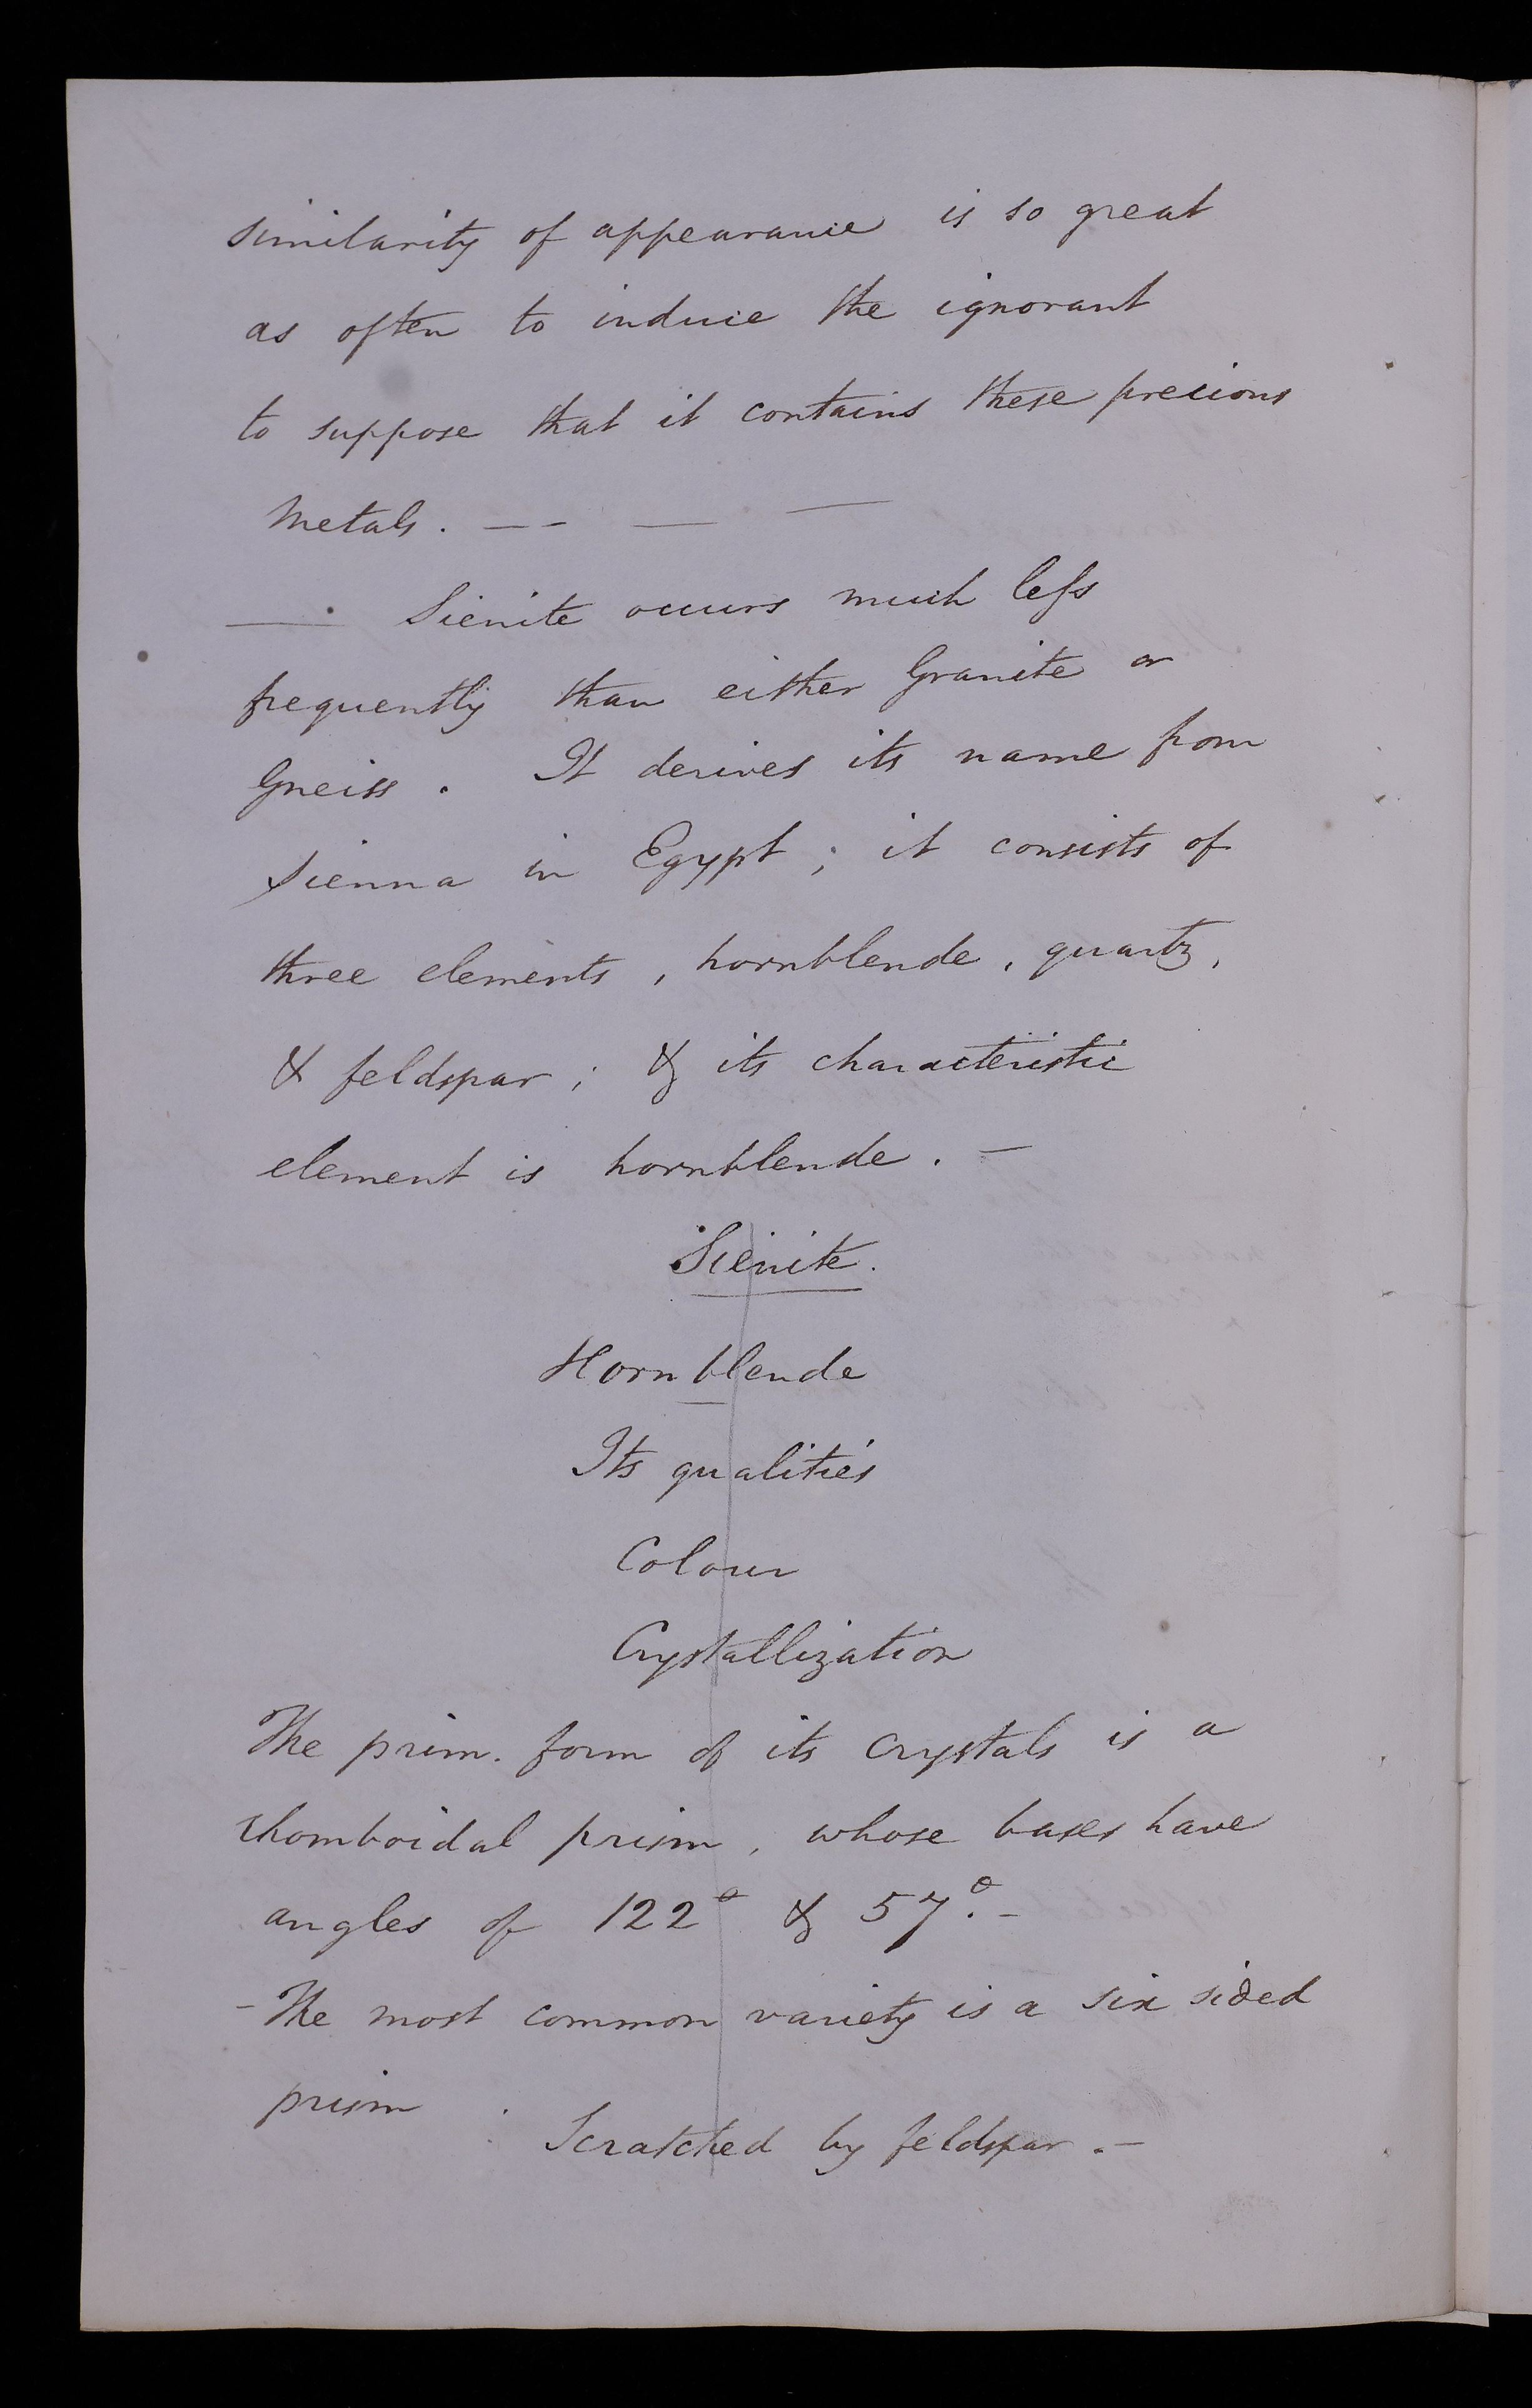 similarity of appearance is so great
as often to induce the ignorant
to suppose that it contains these precious
metals. — — — —
— Sienite occurs much less
frequently than either Granite or
Gneiss. It derives its name from
Sienna in Egypt; it consists of
three elements, hornblende, quartz,
& feldspar; & its characteristic
element is hornblende. —
Sienite.
Hornblende
Its qualities
Colour
Crystallization
The prim. form of its crystals is a
rhomboidal prism, whose bases have
angles of 122° & 57°. –
– The most common variety is a six sided
prism.
Scratched by feldspar. –